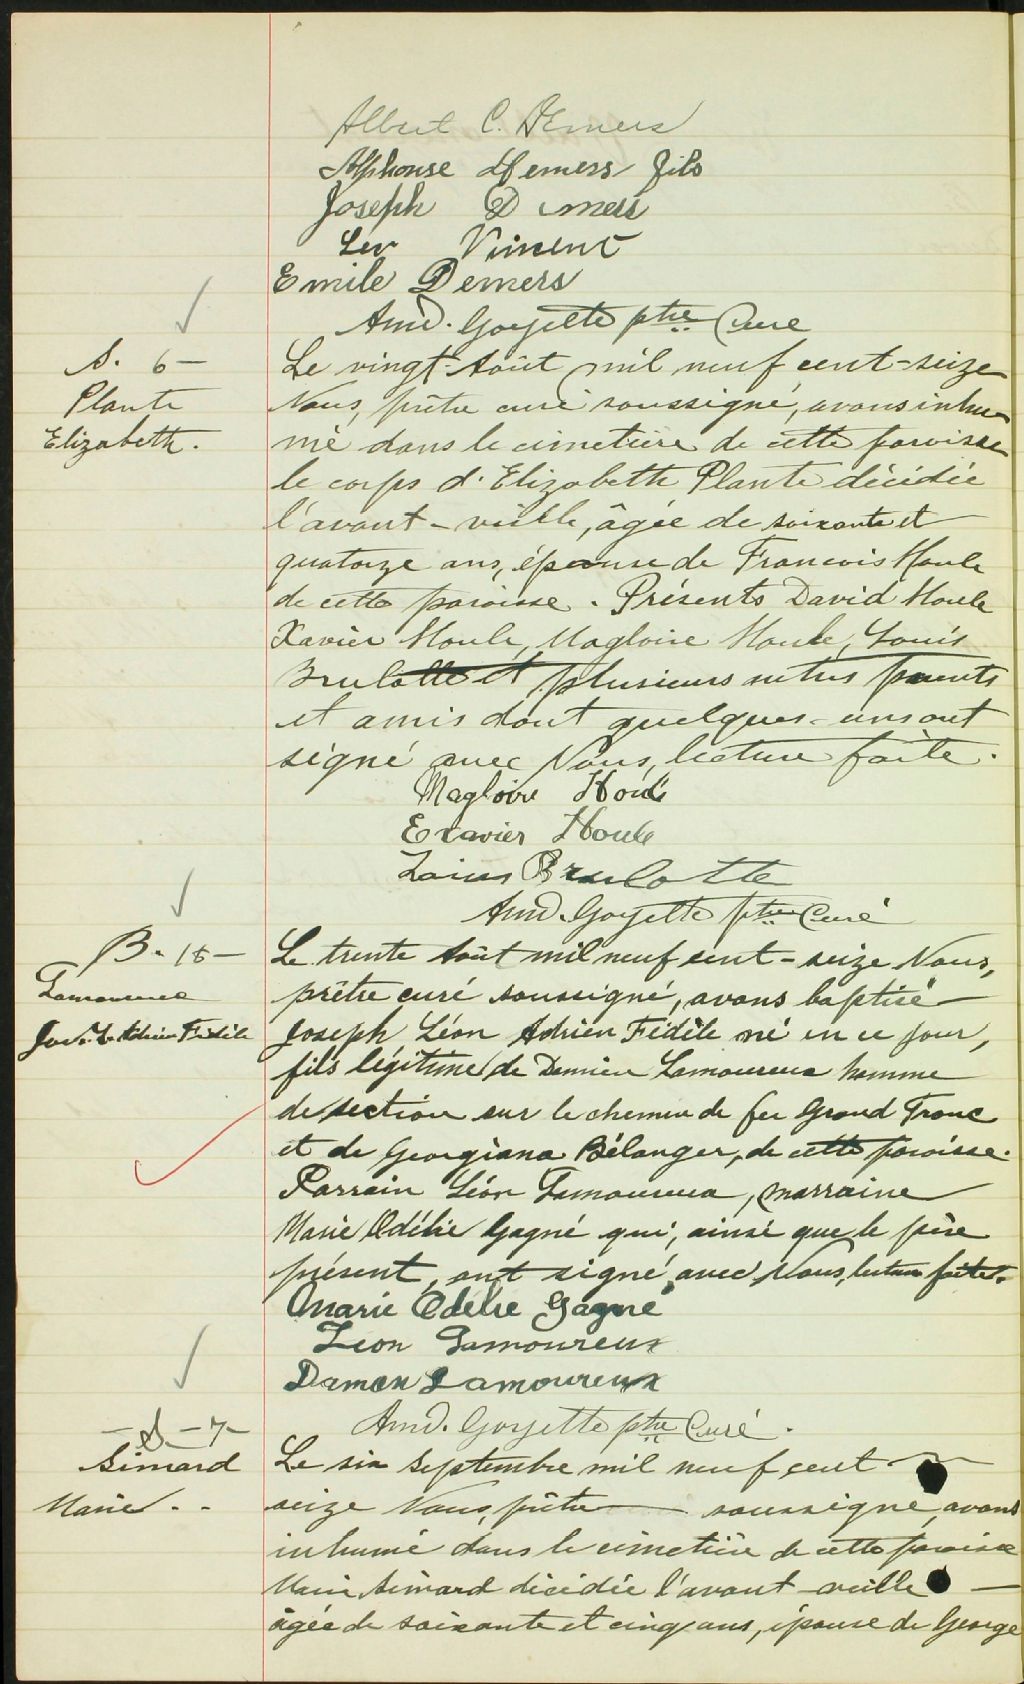 Albert C. Demers
Alphonse Demers fils
Joseph Demers
Leo Vincent
Emile Demers
Amd. Goyette ptre Curé
S. 6 –
Plante
Elizabeth.
Le vingt-Août mil neuf cent-seize
Nous, prêtre curé soussigné, avons inhu-
mé dans le cimetière de cette paroisse
le corps d'Elizabeth Plante décédée
l'avant-veille, âgée de soixante et
quatorze ans, épouse de Francois Houle
de cette paroisse. Présents David Houle
Xavier Houle, Magloire Houle, Louis
Brulotte et plusieurs autres parents
et amis dont quelques-uns ont
signé avec Nous, lecture faite.
Magloire Houle
Exavier Houle
Louis Brulotte
Amd. Goyette ptre Curé
B. 18 –
Lamoureux
Jos. L. Adrien Fidèle
Le trente Août mil neuf cent-seize Nous,
prêtre curé soussigné, avons baptisé
Joseph Léon Adrien Fidèle né en ce jour,
fils légitime de Damien Lamoureux homme
de section sur le chemin de fer Grand Tronc
et de Georgiana Bélanger, de cette paroisse.
Parrain Léon Lamoureux, marraine
Marie Odélie Gagné qui, ainsi que le père
présent, ont signé avec Nous, lecture faite.
Marie Odelie Gagné
Leon Lamoureux
Damen Lamoureux
Amd. Goyette ptre Curé.
– S – 7 –
Simard
Marie . .
Le six Septembre mil neuf cent
seize Nous, prêtre — soussigné, avons
inhumé dans le cimetière de cette paroisse
Marie Simard décédée l'avant-veille —
âgée de soixante et cinq ans, épouse de George